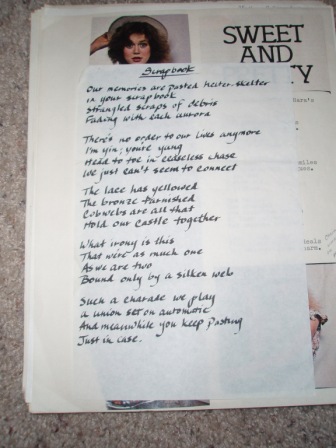 SWEET
AND
Scrapbook
Our memories are pasted helter-skelter
in your scrapbook
Strangled scraps of debris
Fading with each aurora
There's no order to our lives anymore
I'm yin; you're yang
Head to toe in ceaseless chase
We just can't seem to connect
The lace has yellowed
The bronze tarnished
Cobwebs are all that
Hold our castle together
What irony is this
That we're as much one
As we are two
Bound only by a silken web
Such a charade we play
a union set on automatic
And meanwhile you keep pasting
Just in case.